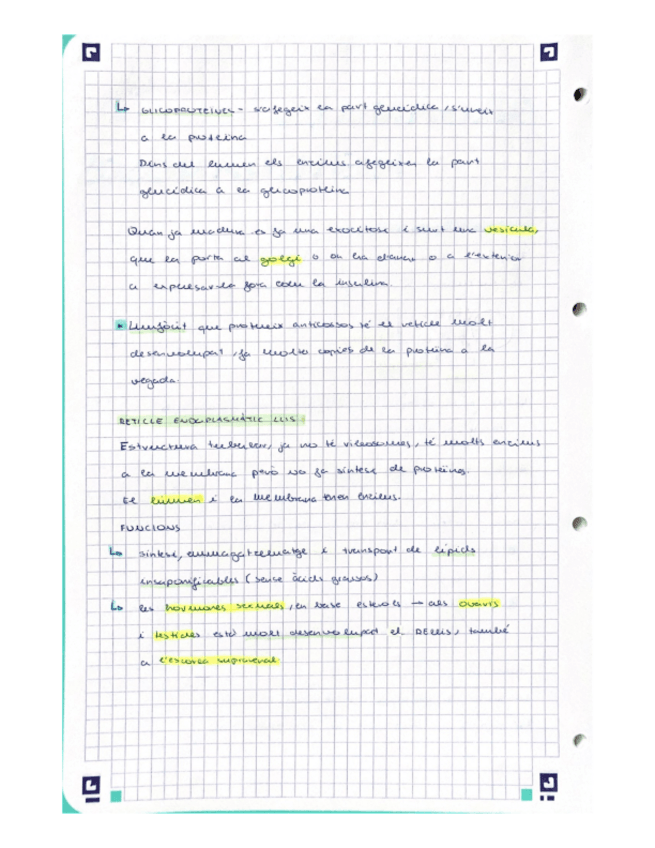 ↳ GLICOPROTEÏNES - s'afegeix la part glucídica, s'uneix
a la proteïna
Dins del lumen els enzims afegeixen la part
glucídica a la glicoproteïna
Quan ja madura es fa una exocitosi i surt una vesícula,
que la porta al golgi o on ha d'anar o a l'exterior
a expresar-la fora com la insulina.
* Limfòcit que produeix anticossos té el reticle molt
desenvolupat, fa moltes copies de la proteïna a la
vegada.
RETICLE ENDOPLASMÀTIC LLIS
Estructura tubular, ja no té ribosomes, té molts enzims
a la membrana però no fa síntesi de proteïnes.
El lúmen i la membrana tenen enzims.
FUNCIONS
↳ síntesi, emmagatzematge i transport de lípids
insaponificables (sense àcids grassos)
↳ les hormones sexuals, en base esterols → als ovaris
i testicles està molt desenvolupat el REllis, també
a l'escorça suprarenal